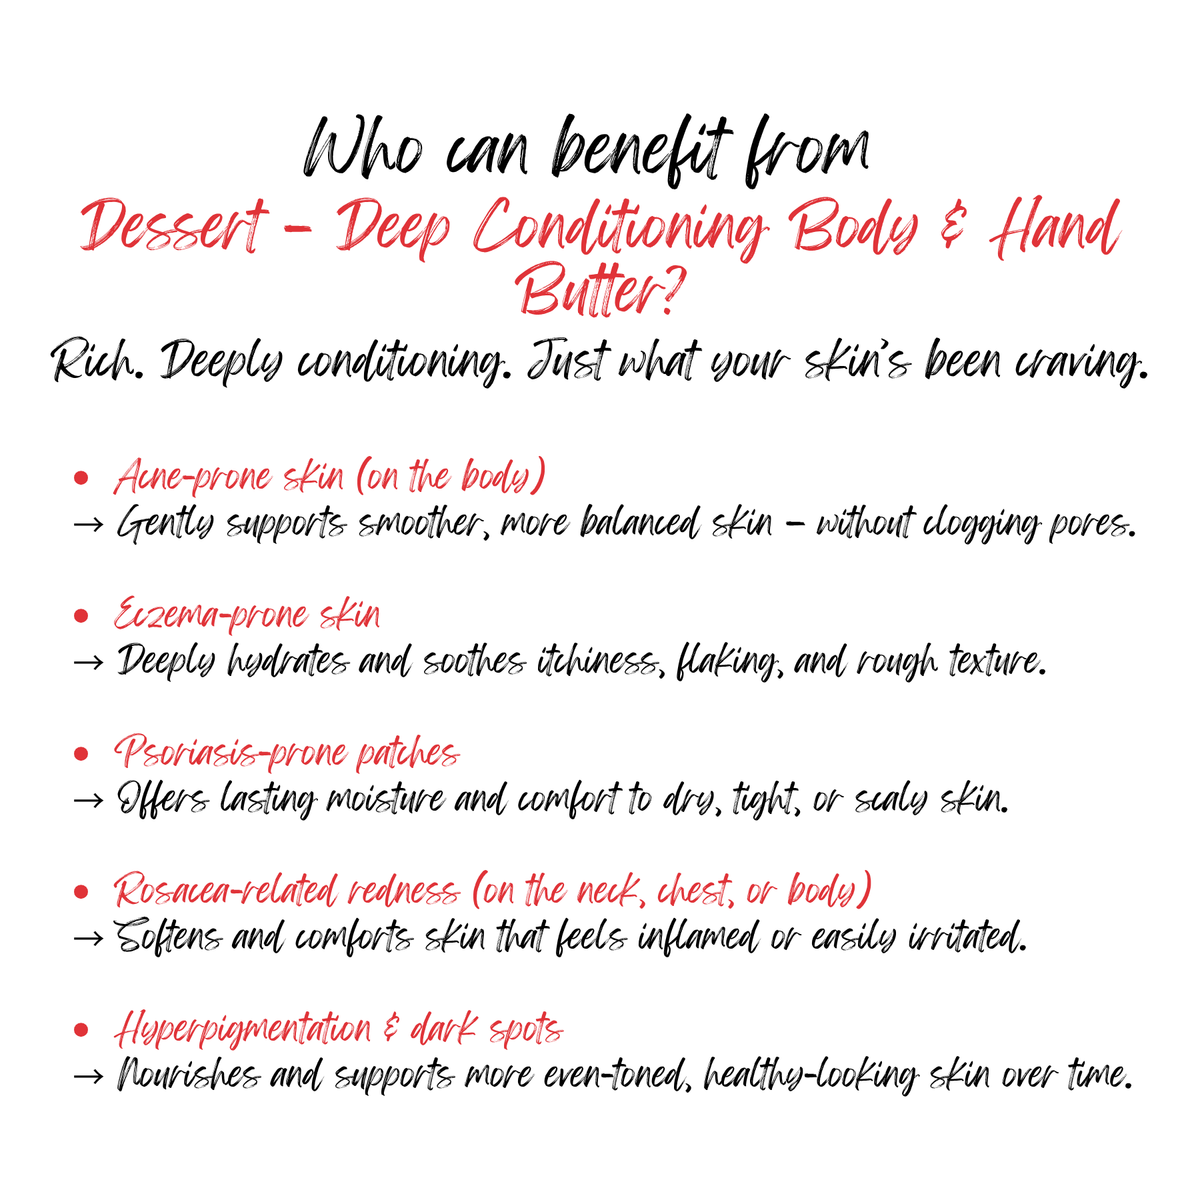 Who can benefit from
Dessert – Deep Conditioning Body & Hand
Butter?
Rich. Deeply conditioning. Just what your skin's been craving.
• Acne-prone skin (on the body)
→ Gently supports smoother, more balanced skin – without clogging pores.
• Eczema-prone skin
→ Deeply hydrates and soothes itchiness, flaking, and rough texture.
• Psoriasis-prone patches
→ Offers lasting moisture and comfort to dry, tight, or scaly skin.
• Rosacea-related redness (on the neck, chest, or body)
→ Softens and comforts skin that feels inflamed or easily irritated.
• Hyperpigmentation & dark spots
→ Nourishes and supports more even-toned, healthy-looking skin over time.